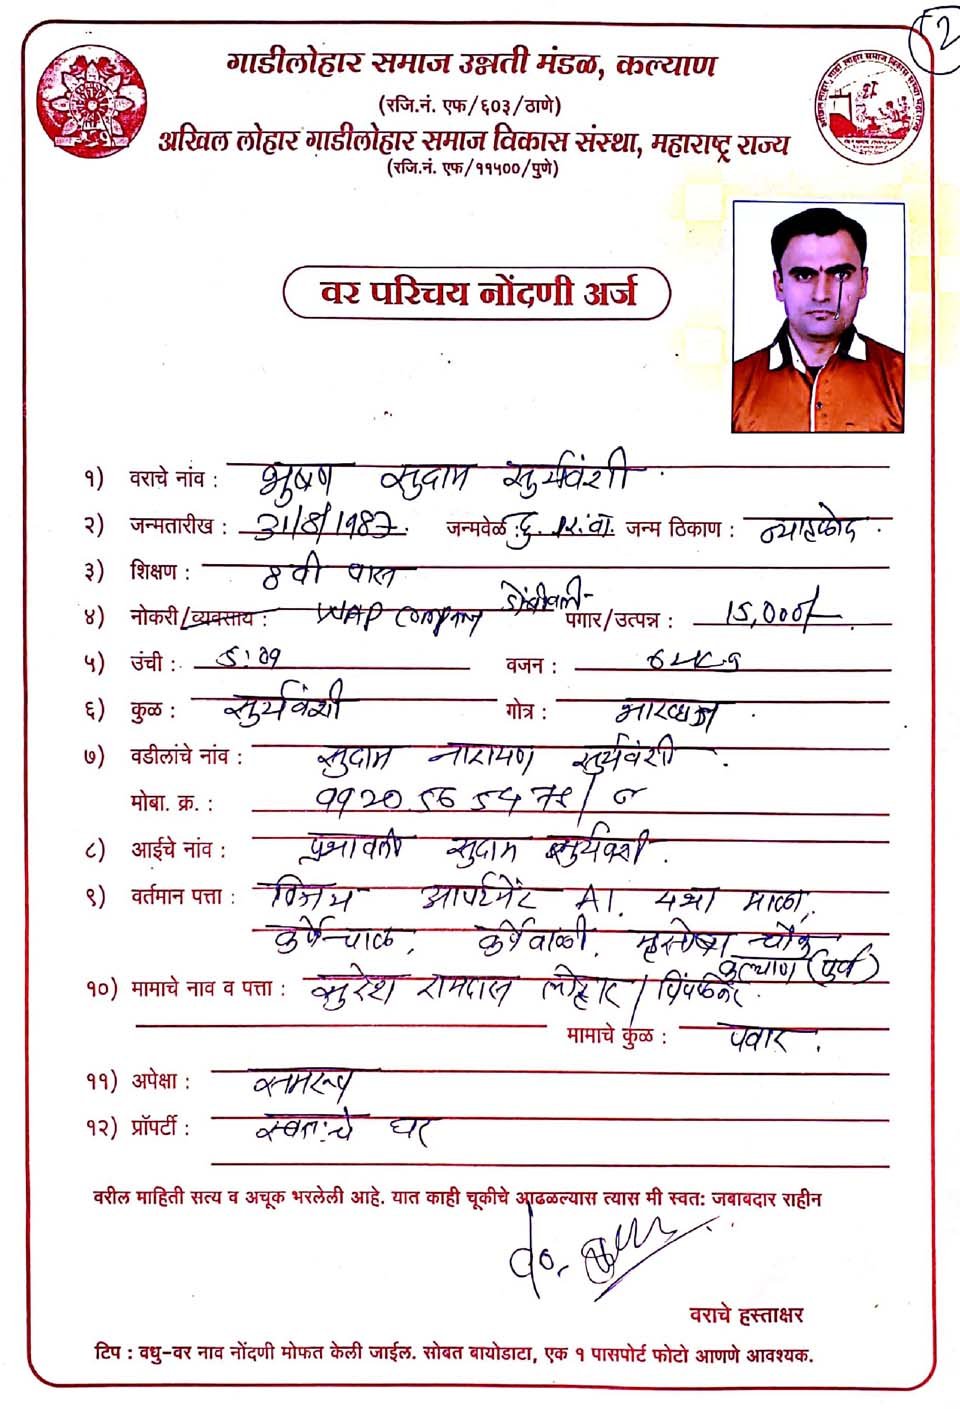 2
गाडीलोहार समाज उन्नती मंडळ, कल्याण
(रजि.नं. एफ/६०३/ठाणे)
अखिल लोहार गाडीलोहार समाज विकास संस्था, महाराष्ट्र राज्य
(रजि.नं. एफ/११५००/पुणे)
वर परिचय नोंदणी अर्ज
१) वराचे नांव : भुषण सुदाम सुर्यवंशी
२) जन्मतारीख : 31/8/1987 जन्मवेळ : दु. जन्म ठिकाण :
३) शिक्षण : 8 वी पास
४) नोकरी/व्यवसाय : WAP Company डोंबीवली पगार/उत्पन्न : 15,000/-
५) उंची : 5:09 वजन :
६) कुळ : सुर्यवंशी गोत्र : भारव्दाज
७) वडीलांचे नांव : सुदाम नारायण सुर्यवंशी
मोबा. क्र. :
८) आईचे नांव : प्रभावती सुदाम सुर्यवंशी
९) वर्तमान पत्ता : विजय अपार्टमेंट A1, माळा,
कर्पेवाडी, चौक
कल्याण (पुर्व)
१०) मामाचे नाव व पत्ता : सुरेश रामदास लोहार / पिंपळनेर
मामाचे कुळ : पवार
११) अपेक्षा :
१२) प्रॉपर्टी : स्वतःचे घर
वरील माहिती सत्य व अचूक भरलेली आहे. यात काही चूकीचे आढळल्यास त्यास मी स्वत: जबाबदार राहीन
वराचे हस्ताक्षर
टिप : वधु-वर नाव नोंदणी मोफत केली जाईल. सोबत बायोडाटा, एक १ पासपोर्ट फोटो आणणे आवश्यक.